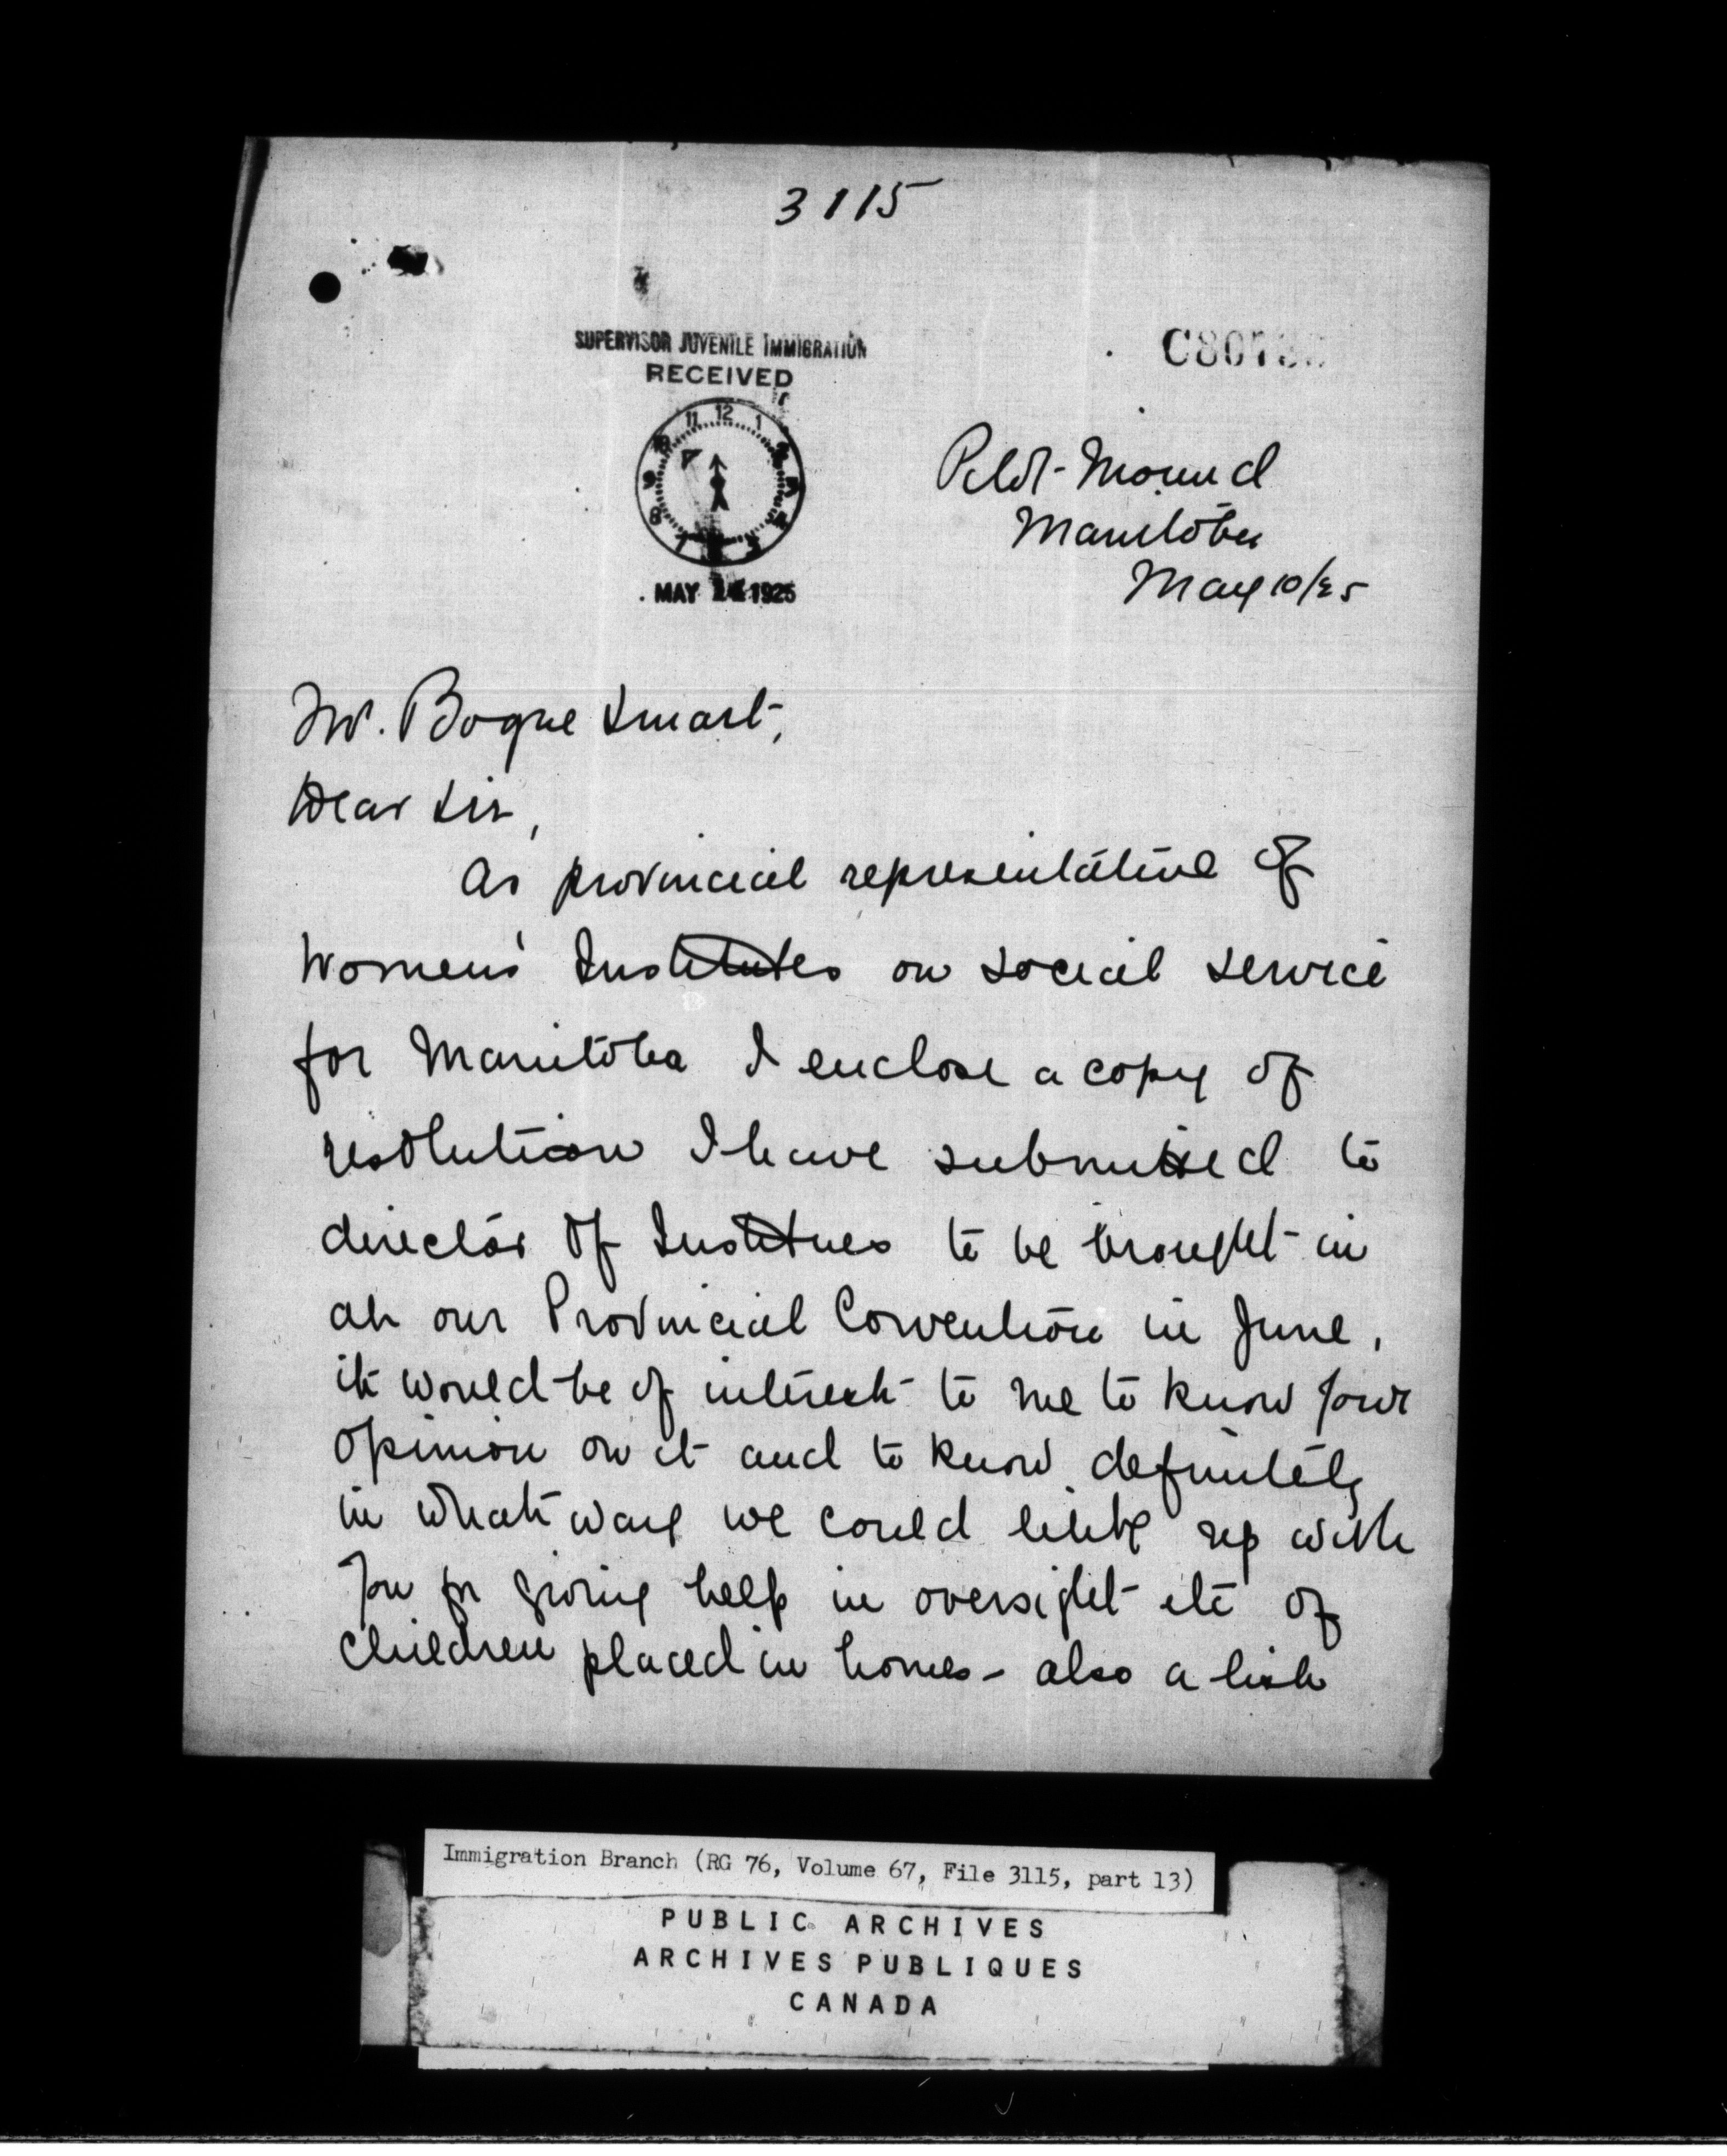 3115
SUPERVISOR JUVENILE IMMIGRATION
RECEIVED
MAY 1925
Pilot Mound
Manitoba
May 10/25
Mr. Bogue Smart,
Dear Sir,
As provincial representative of
Women's Institutes on social service
for Manitoba I enclose a copy of
resolution I have submitted to
director of Institues to be brought in
at our Provincial Convention in June,
it would be of interest to me to know your
opinion on it and to know definitely
in what way we could link up with
you for giving help in oversight etc of
children placed in homes - also a list
Immigration Branch (RG 76, Volume 67, File 3115, part 13)
PUBLIC ARCHIVES
ARCHIVES PUBLIQUES
CANADA